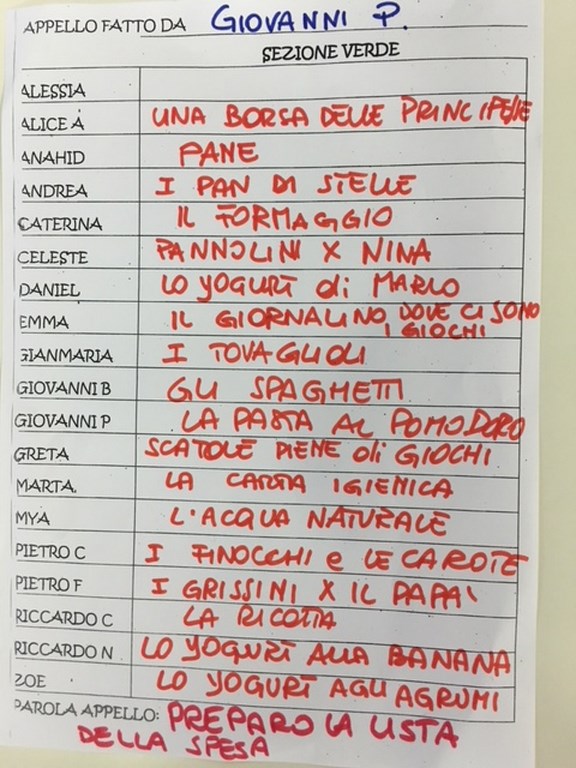 APPELLO FATTO DA GIOVANNI P.
SEZIONE VERDE
ALESSIA
ALICE A UNA BORSA DELLE PRINCIPESSE
ANAHID PANE
ANDREA I PAN DI STELLE
CATERINA IL FORMAGGIO
CELESTE PANNOLINI X NINA
DANIEL LO YOGURT di MARLO
EMMA IL GIORNALINO, DOVE CI SONO I GIOCHI
GIANMARIA I TOVAGLIOLI
GIOVANNI B GLI SPAGHETTI
GIOVANNI P LA PASTA AL POMODORO
GRETA SCATOLE PIENE di GIOCHI
MARTA LA CARTA IGIENICA
MYA L'ACQUA NATURALE
PIETRO C I FINOCCHI e LE CAROTE
PIETRO F I GRISSINI X IL PAPA'
RICCARDO C LA RICOTTA
RICCARDO N LO YOGURT ALLA BANANA
ZOE LO YOGURT AGLI AGRUMI
PAROLA APPELLO: PREPARO LA LISTA
DELLA SPESA